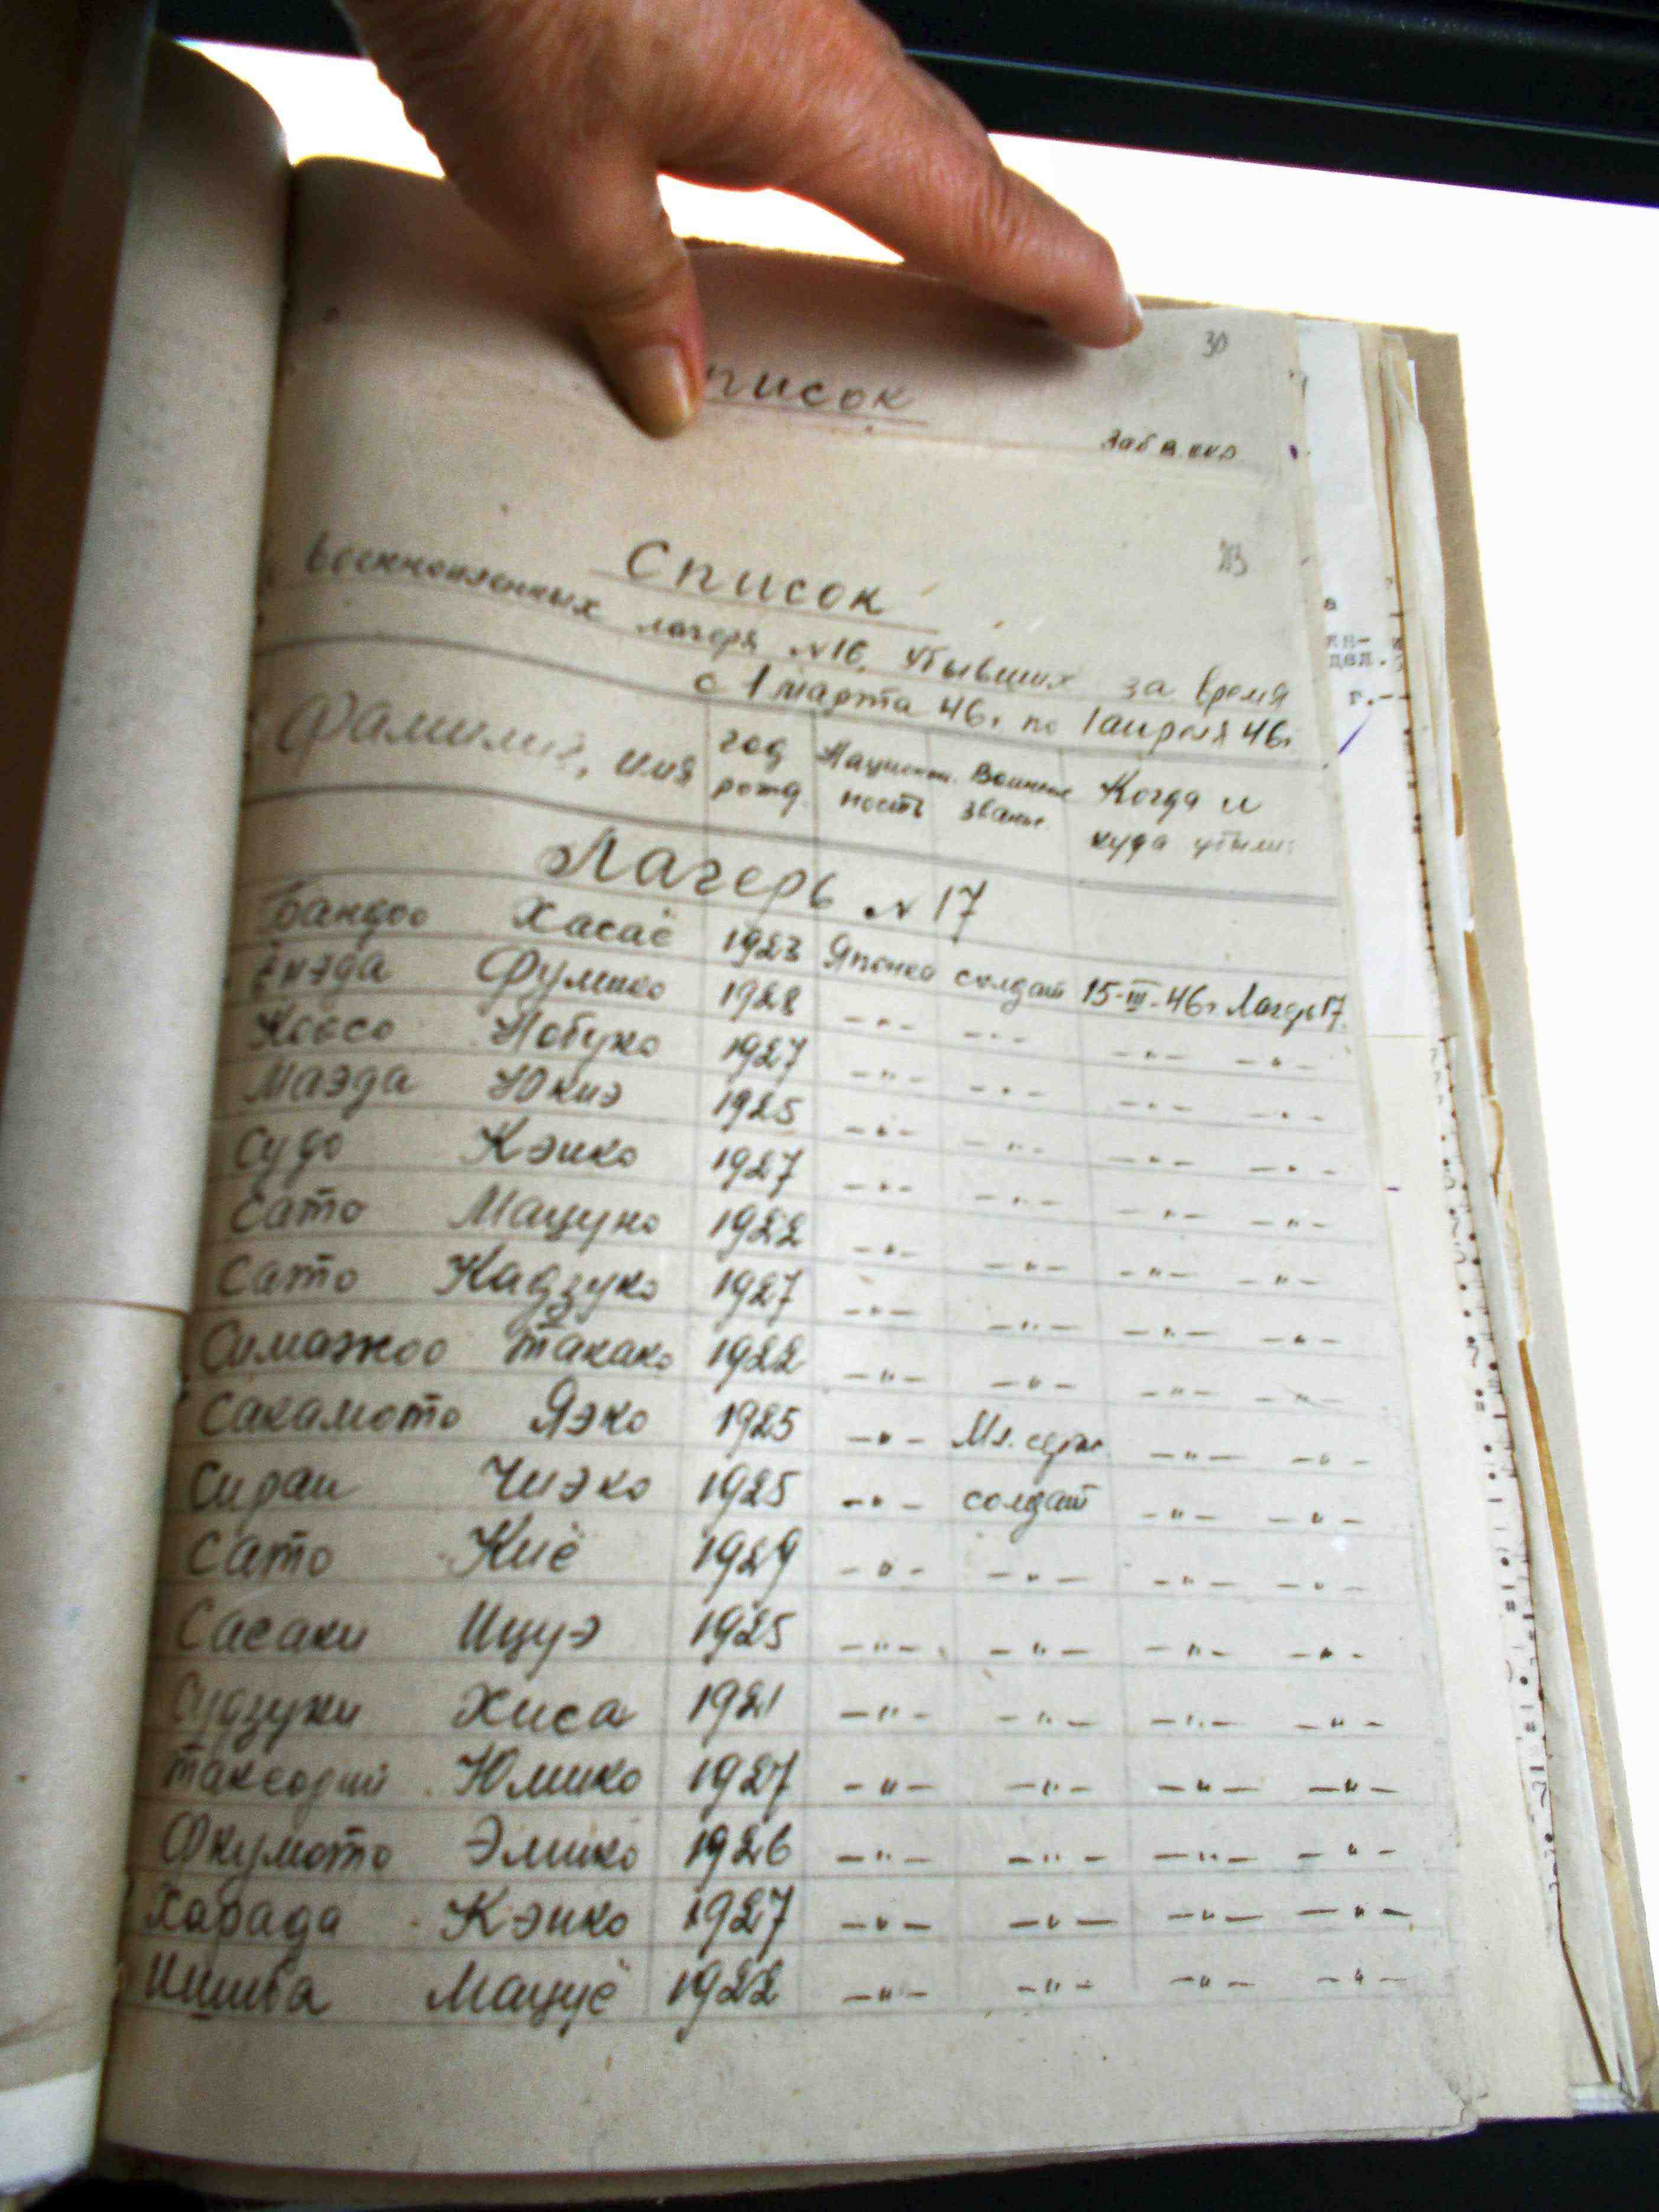 30
писок
Список
военнопленных лагеря №16, убывших за время
с 1 марта 46г. по 1 апреля 46г.
Фамилия, имя год рожд. Национальность Воинское званье Когда и куда убыли:
Лагерь №17
Бандоо Хасаё 1923 Японка солдат 15-III-46г Лагерь 17.
Ёнэда Фумико 1928 -"- -"- -"- -"-
Нобуко 1927 -"- -"- -"- -"-
Маэда Юкиэ 1925 -"- -"- -"- -"-
Судо Кэико 1927 -"- -"- -"- -"-
Сато Мацуко 1922 -"- -"- -"- -"-
Сато Кадзуко 1927 -"- -"- -"- -"-
Симажоо Такако 1922 -"- -"- -"- -"-
Сакамото Яэко 1925 -"- Мл. серж. -"- -"-
Сираи Чиэко 1925 -"- солдат -"- -"-
Сато Киё 1929 -"- -"- -"- -"-
Сасаки Ицуэ 1925 -"- -"- -"- -"-
Судзуки Хиса 1921 -"- -"- -"- -"-
Юмико 1927 -"- -"- -"- -"-
Фкумото Эмико 1926 -"- -"- -"- -"-
Харада Кэико 1927 -"- -"- -"- -"-
Мацуё 1922 -"- -"- -"- -"-